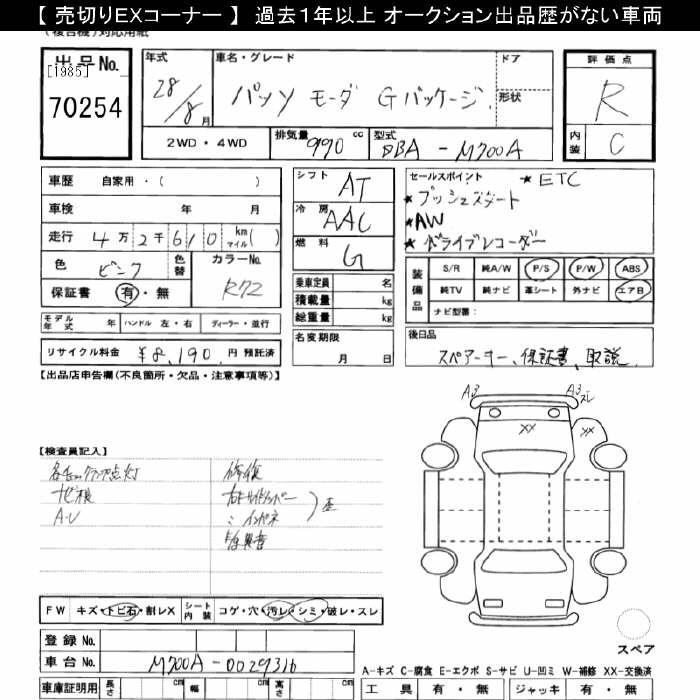 【 売切りEXコーナー 】 過去1年以上 オークション出品歴がない車両
(複合機)対応用紙
出品No.
[1985]
70254
年式 28/8月
車名・グレード パッソ モーダ Gパッケージ
ドア
形状
評価点 R
内装 C
2WD・4WD
排気量 990 cc
型式 DBA-M700A
車歴 自家用・( )
車検 年 月
走行 4万2千610 km マイル( )
色 ピンク
色替
カラーNo. R72
保証書 有・無
シフト AT
冷房 AAC
燃料 G
乗車定員 名
積載量 kg
総重量 kg
セールスポイント ★ETC
★プッシュスタート
★AW
★ドライブレコーダー
装備品
S/R 純A/W P/S P/W ABS
純TV 純ナビ 革シート 外ナビ エアB
ナビ型番:
モデル年式 年 ハンドル 左・右 ディーラー・並行
リサイクル料金 ¥8,190. 円 預託済
名変期限 月 日
後日品
スペアーキー、保証書、取説
【出品店申告欄(不良箇所・欠品・注意事項等)】
A3 A3
XX XX
【検査員記入】
ナビ横
A-U
修復
インパネ
FW キズ・トビ石・割レX
シート内装 コゲ・穴・汚レ・シミ・破レ・スレ
登録No.
車台No. M700A-0029316
スペア
A-キズ C-腐食 E-エクボ S-サビ U-凹ミ W-補修 XX-交換済
車庫証明用 長さ cm 幅 cm 高さ cm
工具 有・無 ジャッキ 有・無